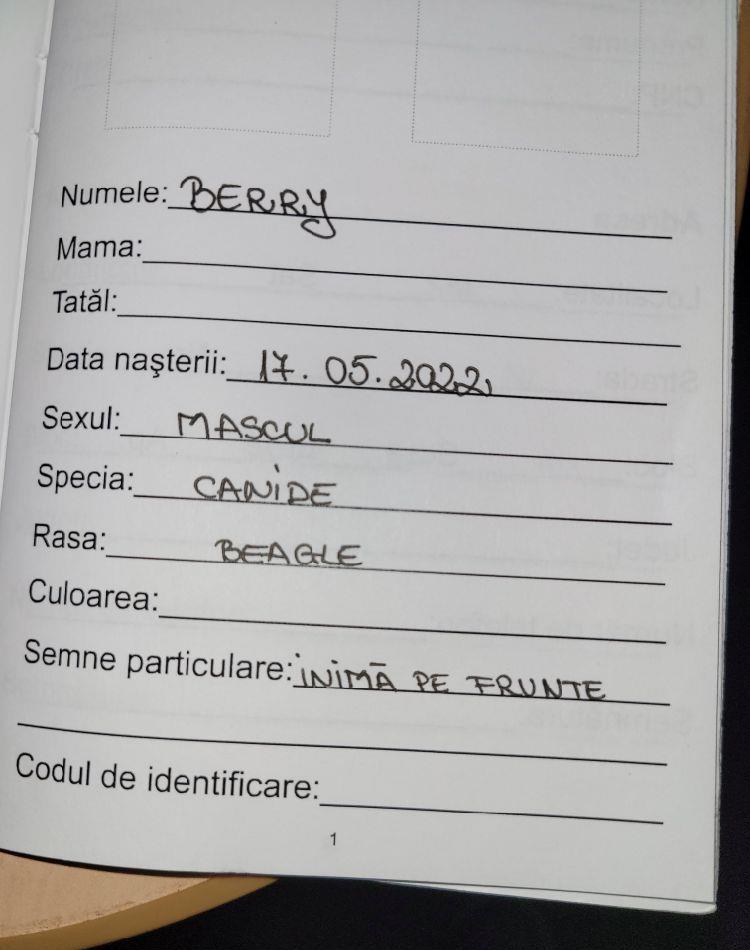 Numele: BERRY
Mama:
Tatăl:
Data naşterii: 17.05.2022
Sexul: MASCUL
Specia: CANIDE
Rasa: BEAGLE
Culoarea:
Semne particulare: INIMĂ PE FRUNTE
Codul de identificare:
1